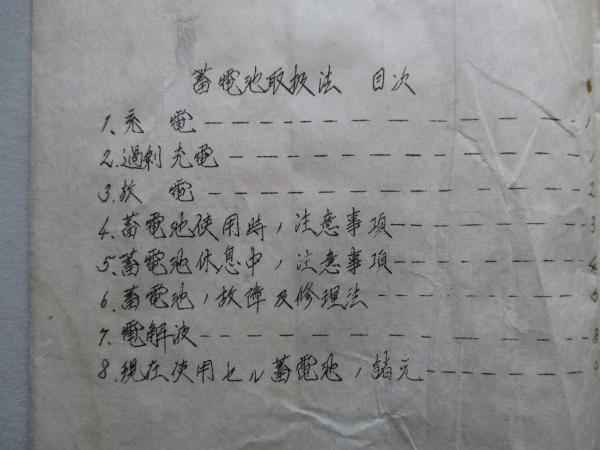 蓄電池取扱法 目次
1、充 電------------------1
2.過剰充電-----------------1
3.放 電------------------2
4.蓄電池使用時ノ注意事項---------3
5.蓄電池休息中ノ注意事項---------4
6.蓄電池ノ故障及修理法----------5
7.電解液------------------8
8.現在使用セル蓄電池ノ諸元--------9